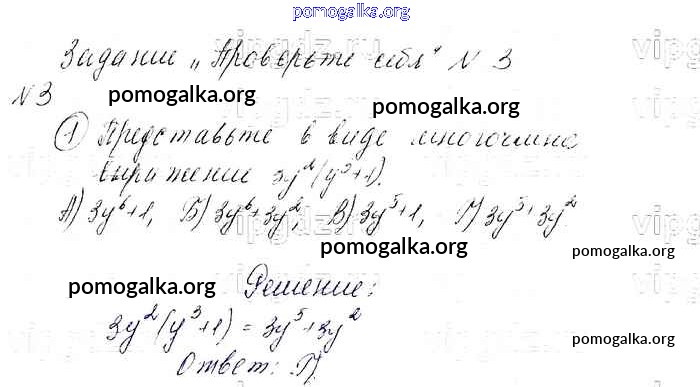 pomogalka.org
Задание "Проверьте себя" N 3
N 3
pomogalka.org
pomogalka.org
1) Представьте в виде многочлена
выражение 3y²(y³+1).
А) 3y⁶+1, Б) 3y⁶+3y², В) 3y⁵+1, Г) 3y⁵+3y²
pomogalka.org
pomogalka.org
Решение:
pomogalka.org
3y²(y³+1) = 3y⁵+3y²
pomogalka.org
Ответ: Г)
vipgdz.ru
vipgdz.ru
vipgdz.ru
vipgdz.ru